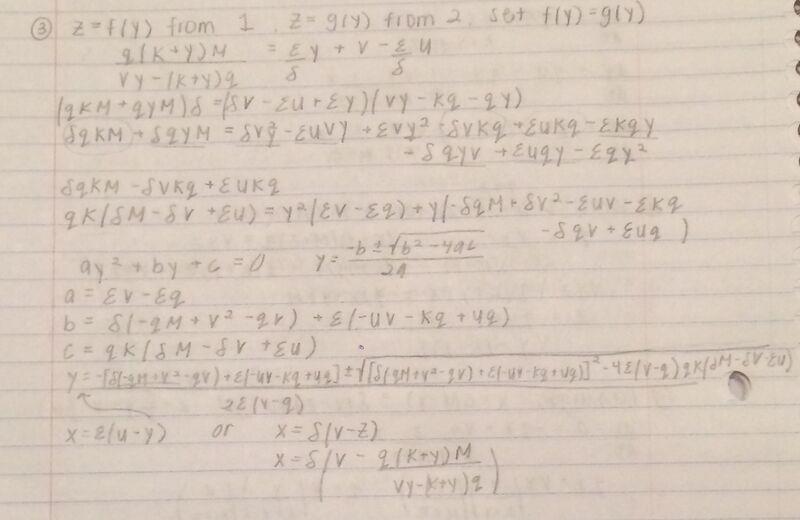 ③ z=f(y) from 1, z=g(y) from 2, set f(y)=g(y)
q(K+y)M / Vy-(K+y)q = ε/δ y + V - ε/δ U
(qKM+qyM)δ = (δV-εU+εy)(Vy-Kq-qy)
δqKM + δqyM = δV²y - εUVy + εVy² - δVKq + εUKq - εKqy
- δqyV + εUqy - εqy²
δqKM - δVKq + εUKq
qK(δM - δV + εU) = y²(εV - εq) + y(-δqM + δV² - εUV - εKq
- δqV + εUq )
ay² + by + c = 0 y = -b ± √b² - 4ac / 2a
a = εV - εq
b = δ(-qM + V² - qV) + ε(-UV - Kq + Uq)
c = qK(δM - δV + εU)
y = -[δ(-qM+V²-qV)+ε(-UV-Kq+Uq)] ± √[δ(qM+V²-qV)+ε(-UV-Kq+Uq)]² - 4ε(V-q)qK(δM-δV-εU)
2ε(V-q)
x = ε(U-y) or x = δ(V-z)
x = δ(V - q(K+y)M / Vy-(K+y)q)